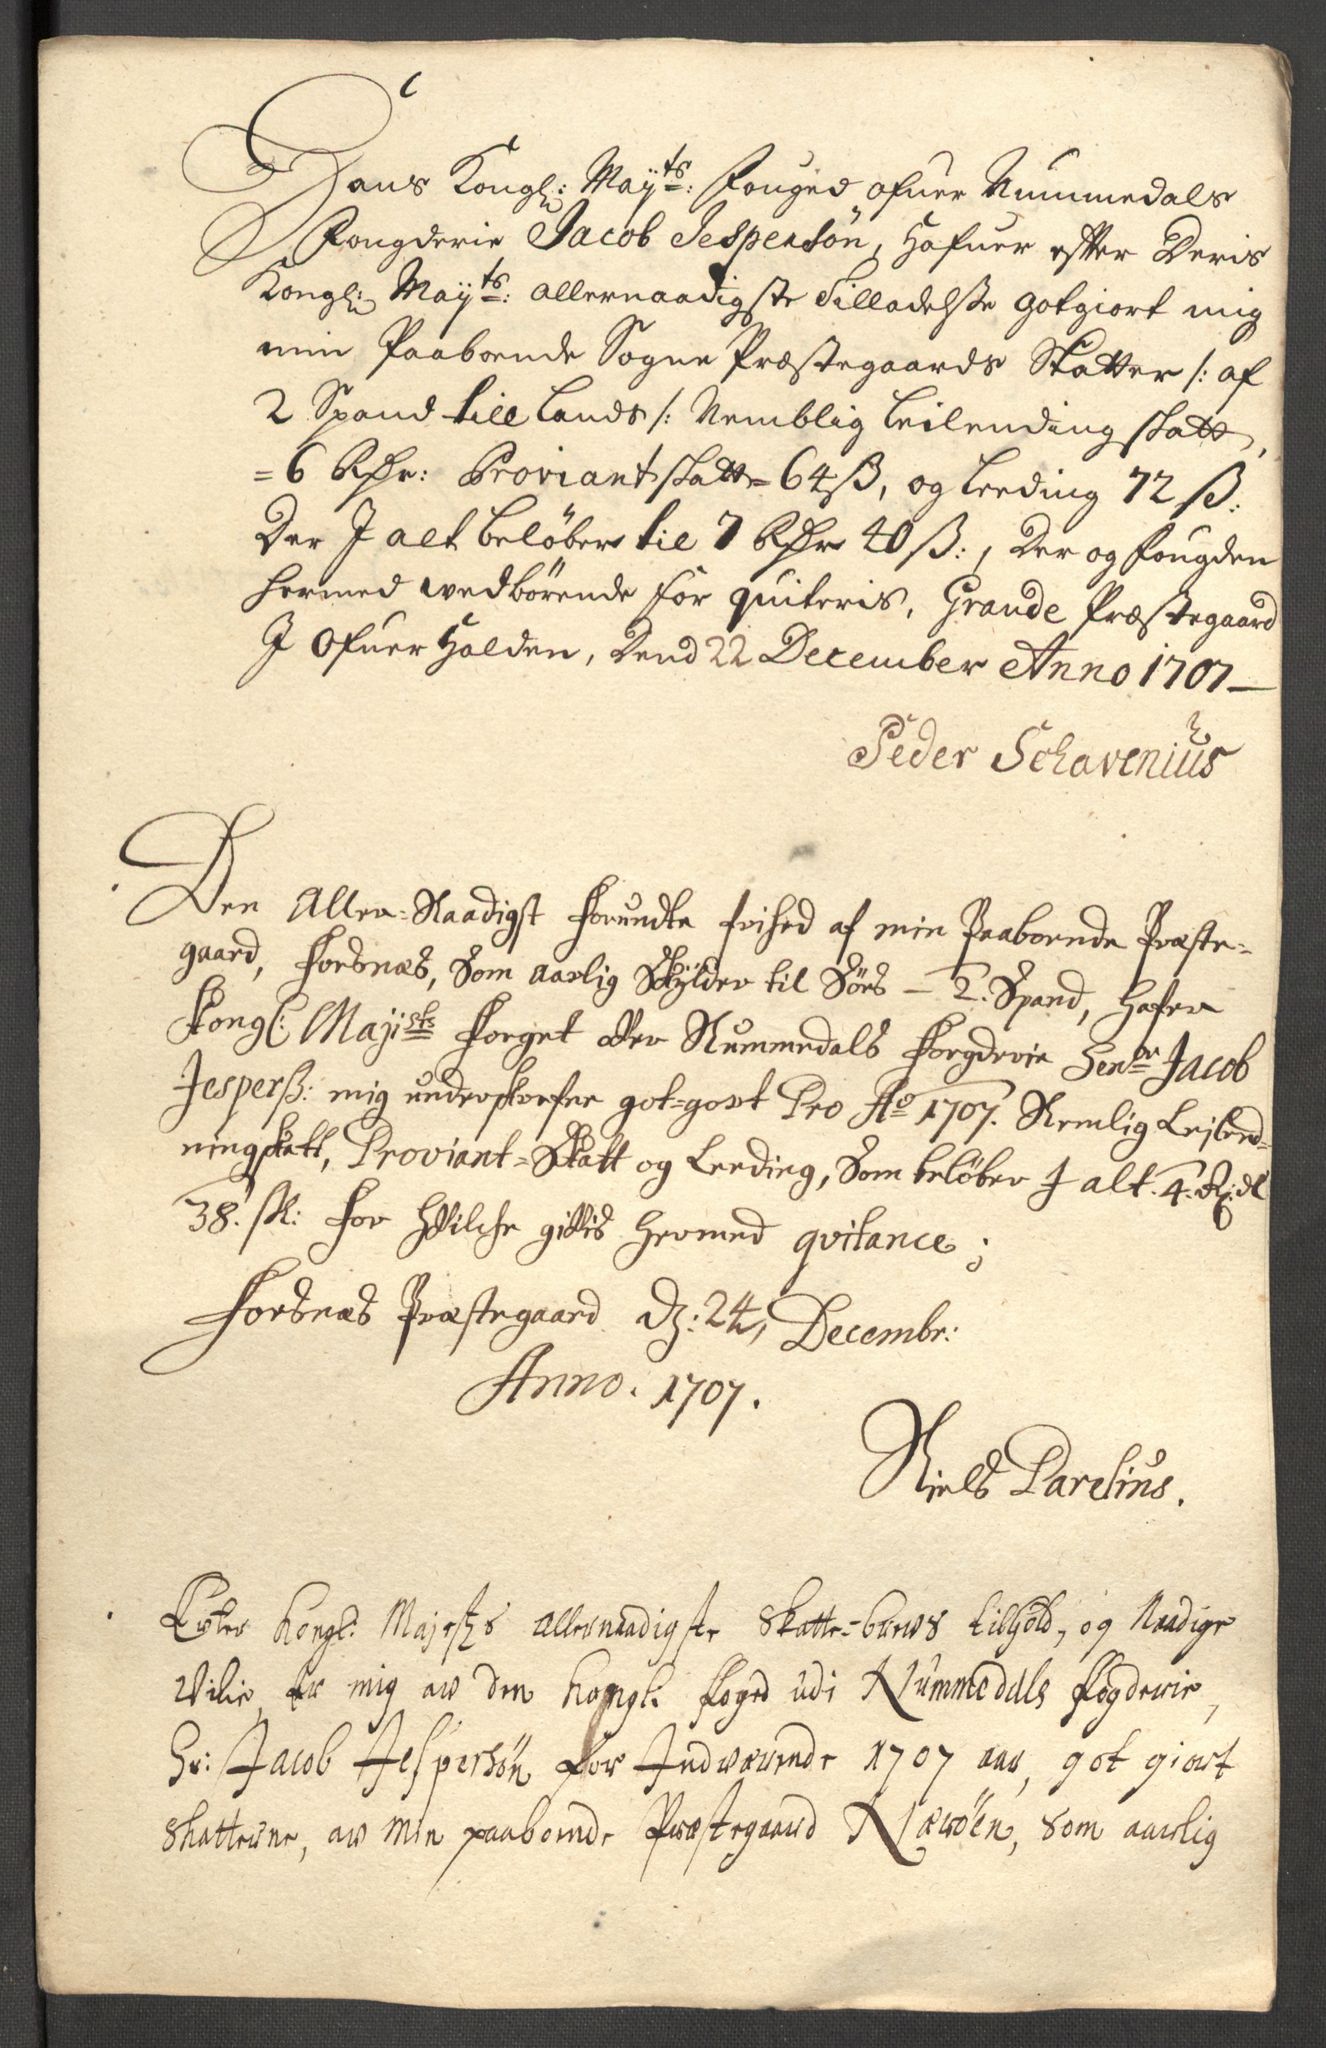 Hans Kongl: Mayts: Fouged ofuer Nummedals
Fougderie Jacob Jespersön, Hafuer efter Deris
Kongl: Mayts: allernaadigste Tilladelße gotgiort mig
min Paaboende Sogne Præstegaards Skatter /: af
2 Spand till Lands /: Nemblig Leilending skatt,
=6 Rdr: Proviant skatt=64ß, og Leeding 72 ß:
Der J alt beløber til 7 Rdr 40ß:, Der og fougden
hermed wedbörende for quiteris, Grande Præstegaard
J Ofuer Halden, Dend 22 December Anno 1707
Peder Schavenius
Den Aller-Naadigst Forundte frihed af min Paaboende Præste-
gaard, Forsnæs, Som aarlig Skylder til Sørs - 2. Spand, hafer
Kongl: Majists Foeget over Nummedals Foegderie Senr Jacob
Jesperß: mig underskrefne got-gort Pro Ao 1707. Nemlig Leilend-
ningskatt, Proviant-Skatt og Leeding, Som beløber J alt. 4. Rdl
38. sk: For hvilche givis hermed qvitance;
Forsnæs Præstegaard d: 24, Decembr:
Anno. 1707.
Niels Parelius.
Efter kongl: Majestz allernaadigste Skatte-brews tilhold, og Naadige
Vilie, er mig aw den kongl: foged udi Nummedals fogderie,
Hr: Jacob Jespersön for Indwærende 1707 aar, got giort
skatterne, aw min paaboende Præstegaard Nærøen, som aarlig